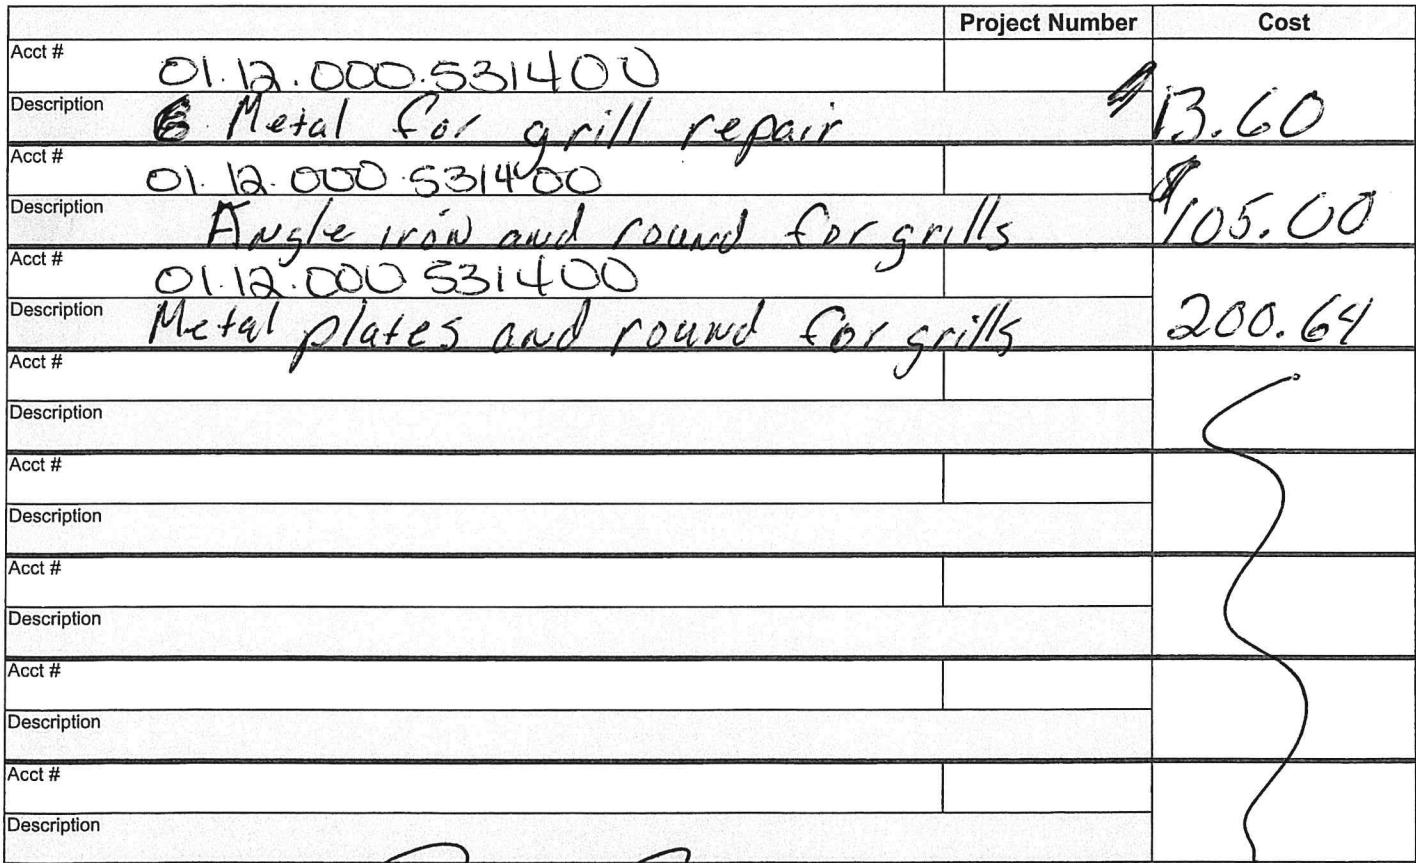 Project Number Cost
Acct # 01.12.000.531400
Description Metal for grill repair $13.60
Acct # 01.12.000.531400
Description Angle iron and round for grills $105.00
Acct # 01.12.000 531400
Description Metal plates and round for grills 200.64
Acct #
Description
Acct #
Description
Acct #
Description
Acct #
Description
Acct #
Description